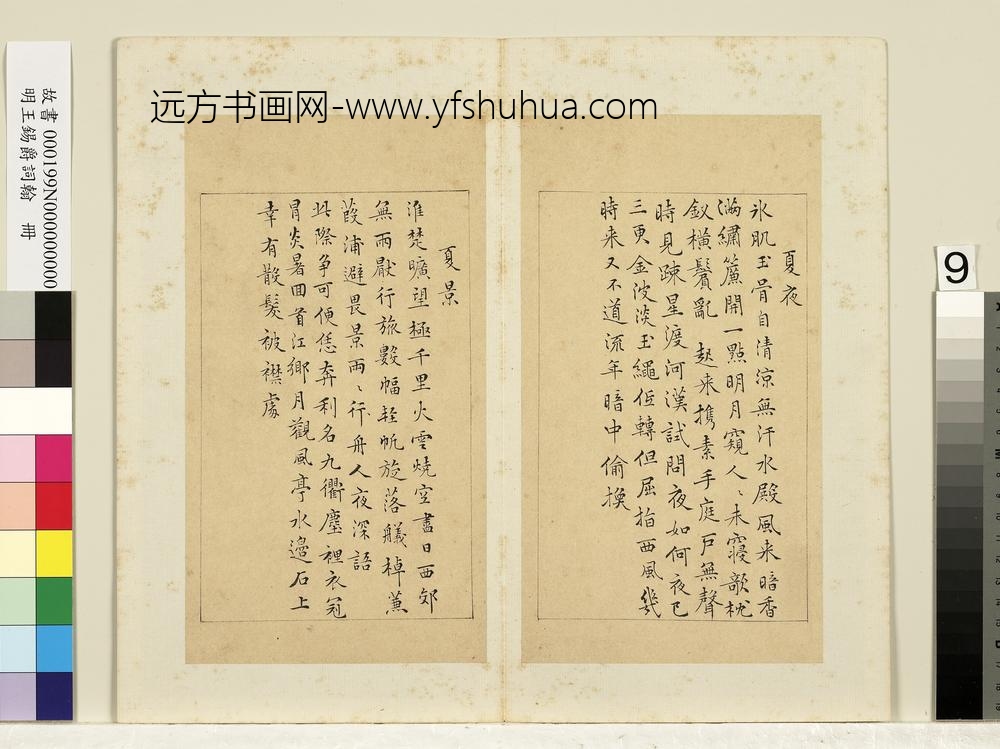 远方书画网-www.yfshuhua.com
夏夜
氷肌玉骨自清涼無汗水殿風来暗香
滿繡簾開一點明月窺人〻未寢欹枕
釵橫鬢亂 起来携素手庭戶無聲
時見疎星渡河漢試問夜如何夜已
三更金波淡玉繩低轉但屈指西風幾
時来又不道流年暗中偷換
夏景
淮楚曠望極千里火雲燒空盡日西郊
無雨厭行旅數幅輕帆旋落艤棹蒹
葭浦避畏景兩〻行舟人夜深語
此際争可便恁奔利名九衢塵裡衣冠
冐炎暑回首江鄉月觀風亭水邊石上
幸有散髮被襟處
故書 000199N000000000
明王錫爵詞翰 冊
9